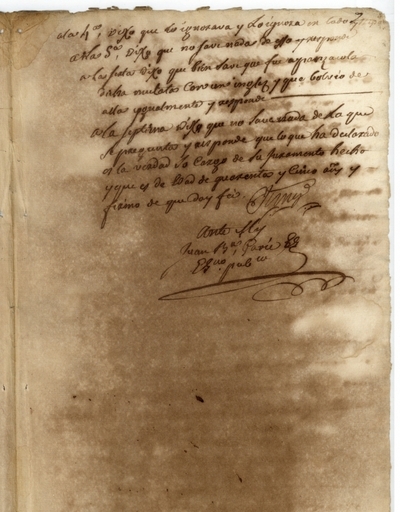 a la 4ª, Dixo que lo ignorava y
a la 5ª, Dixo que no save nada de esto y responde
a la sesta Dixo que bien save que fue
dicha mulata con un ingles y que bolvio de
alla ygualmente y responde
a la septima Dixo que no save nada de lo que
se pregunta y responde que lo que ha declarado
es la verdad so cargo de su juramento fecho
y que es de edad de quarenta y cinco años y
firmo de que doy fee
Ante My
Juan Bª
Esno. puBco